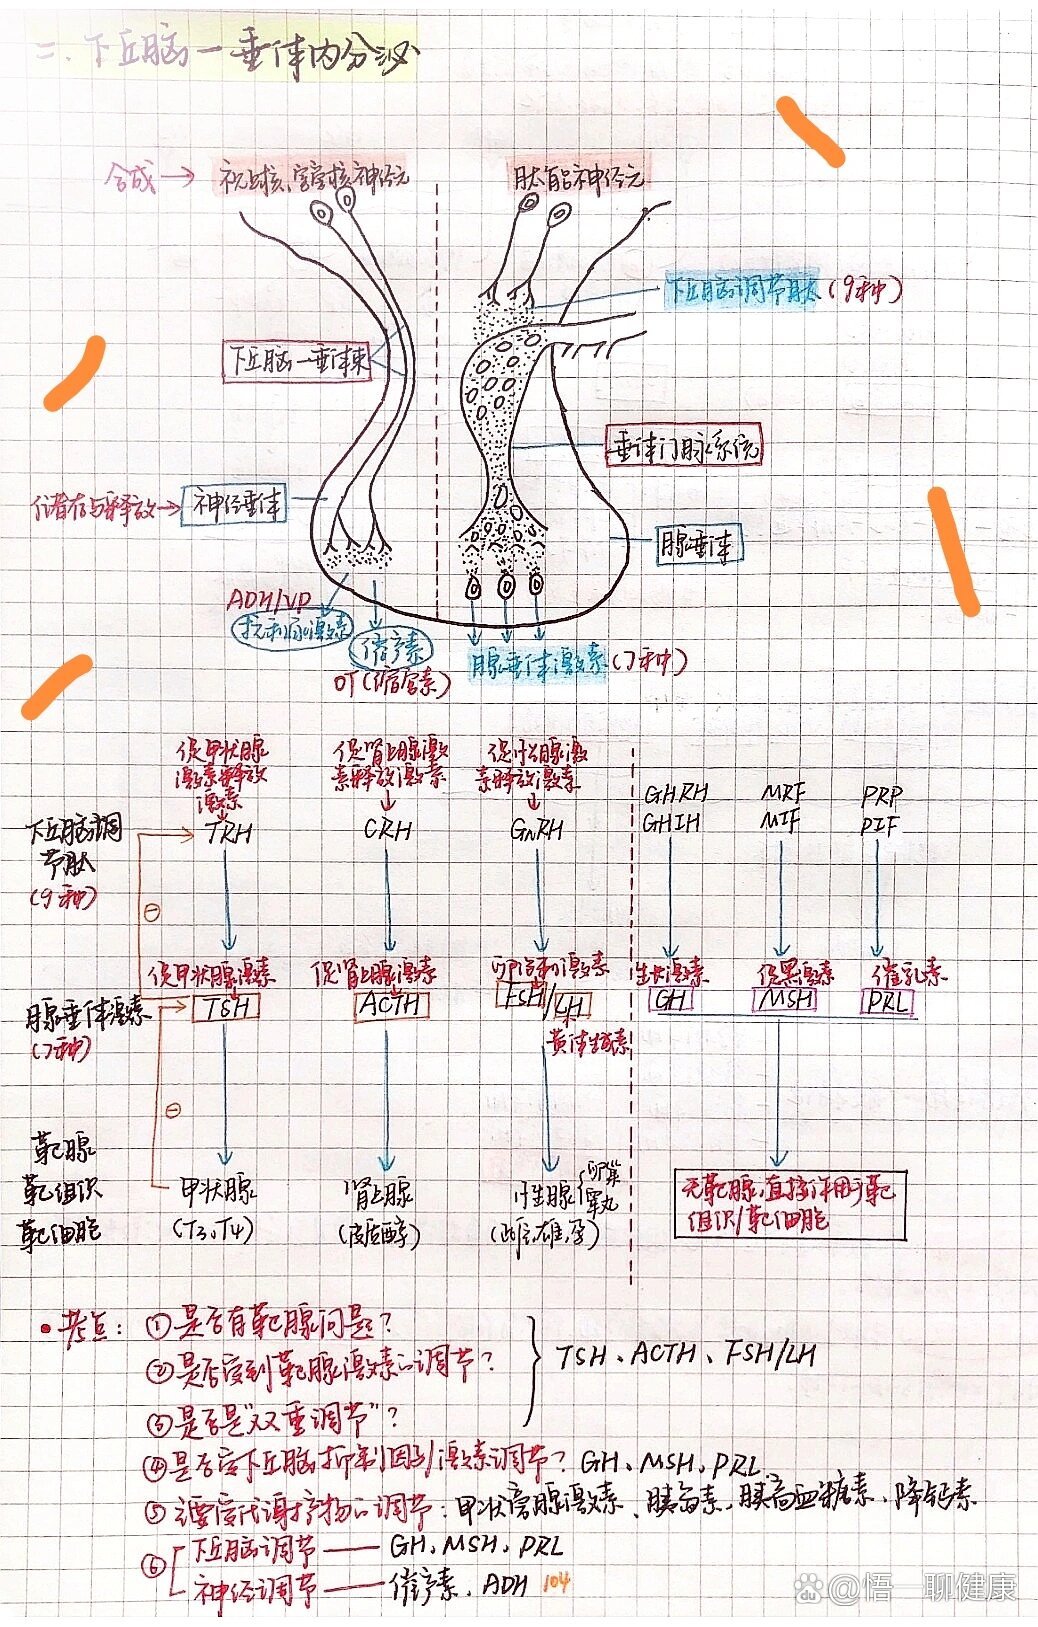 二.下丘脑—垂体内分泌
合成→ 视上核、室旁核神经元 肽能神经元
下丘脑调节肽(9种)
下丘脑—垂体束
垂体门脉系统
储存与释放→ 神经垂体
腺垂体
ADH/VP
抗利尿激素
催产素
OT(缩宫素)
腺垂体激素(7种)
促甲状腺 促肾上腺激 促性腺激
激素释放 素释放激素 素释放激素
激素
GHRH MRF PRP
GHIH MIF PIF
下丘脑调 TRH CRH GnRH
节肽
(9种)
⊖
促甲状腺激素 促肾上腺激素 卵泡刺激素 生长激素 促黑激素 催乳素
TSH ACTH FSH/LH GH MSH PRL
腺垂体激素
(7种)
黄体生成素
⊖
靶腺
靶组织
靶细胞
甲状腺 肾上腺 性腺{卵巢
睾丸
(T3、T4) (皮质醇) (雌、雄、孕)
无靶腺,直接作用于靶
组织/靶细胞
•考点: ①是否有靶腺问题?
②是否受到靶腺激素的调节? } TSH、ACTH、FSH/LH
③是否是"双重调节"?
④是否受下丘脑抑制因子/激素调节? GH、MSH、PRL
⑤主要受代谢产物的调节: 甲状旁腺激素、胰岛素、胰高血糖素、降钙素
⑥ 下丘脑调节——GH、MSH、PRL
神经调节——催产素、ADH 104
du @悟 聊健康